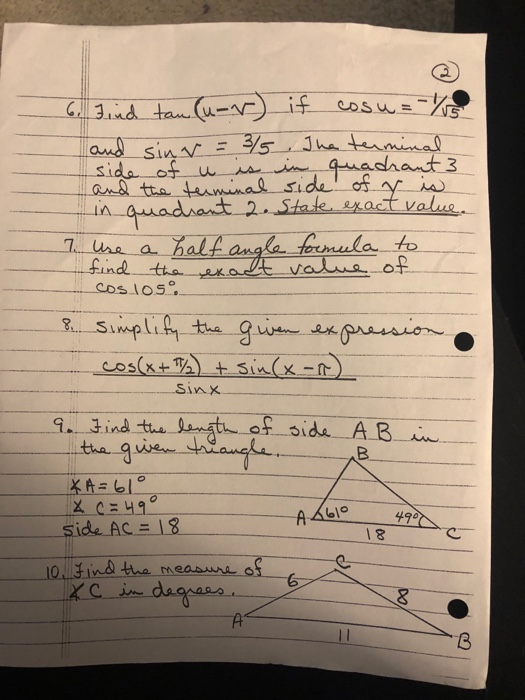 2
6. Find tan (u-v) if cos u = -1/√5
and sin v = 3/5. The terminal
side of u is in quadrant 3
and the terminal side of v is
in quadrant 2. State exact value.
7. Use a half angle formula to
find the exact value of
cos 105°.
8. Simplify the given expression
cos(x + π/2) + sin(x - π)
sin x
9. Find the length of side AB in
the given triangle.
B
∡A = 61°
∡ C = 49°
side AC = 18
A 61° 49° C
18
10. Find the measure of
∡C in degrees.
C
6 8
A B
11